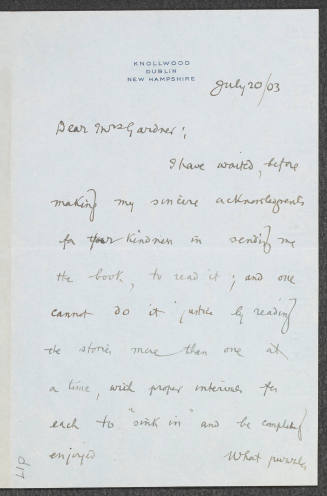 KNOLLWOOD
DUBLIN
NEW HAMPSHIRE
July 20/03
Dear Mrs Gardner;
I have waited, before
making my sincere acknowledgments
for your kindness in sending me
the book, to read it; and one
cannot do it justice by reading
the stories more than one at
a time, with proper intervals for
each to "sink in" and be completely
enjoyed What